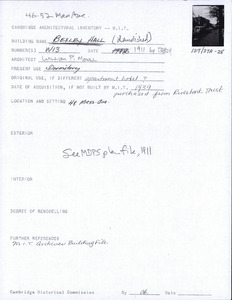 46-52 Mass Ave.
CAMBRIDGE ARCHITECTURAL INVENTORY -- M.I.T.
BUILDING NAME Bexley Hall (demolished)
NUMBER(S) W13 DATE 1911
ARCHITECT
PRESENT USE Dormitory
ORIGINAL USE, IF DIFFERENT apartment hotel ?
DATE OF ACQUISITION, IF NOT BUILT BY M.I.T. 1939
purchased from Trust
LOCATION AND SETTING 46 Mass. Ave.
EXTERIOR
See file, 1911
INTERIOR
DEGREE OF REMODELLING
FURTHER REFERENCES
M.I.T. Archives Building File
Cambridge Historical Commission By